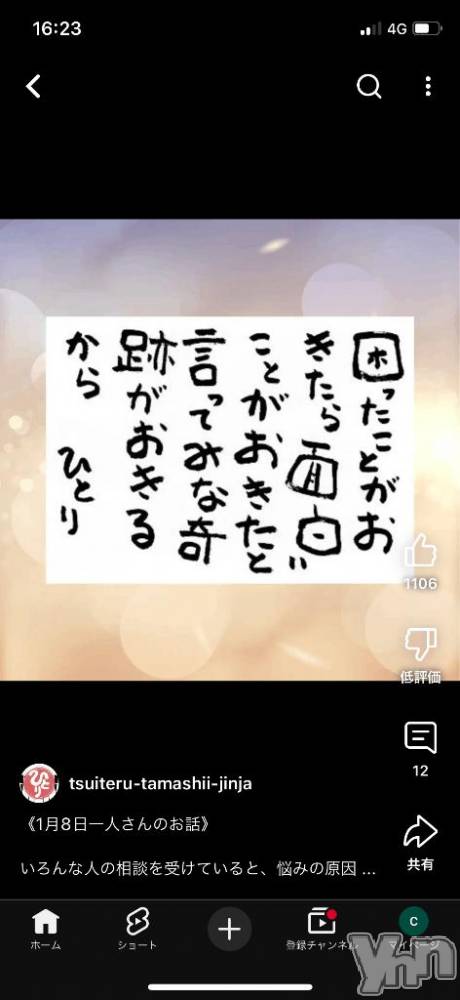 16:23
4G
困ったことがお
きたら面白い
ことがおきたと
言ってみな奇
跡がおきる
から ひとり
1106
低評価
12
共有
ひとり
tsuiteru-tamashii-jinja
《1月8日一人さんのお話》
いろんな人の相談を受けていると、悩みの原因 ...
ホーム
ショート
登録チャンネル
C
マイページ